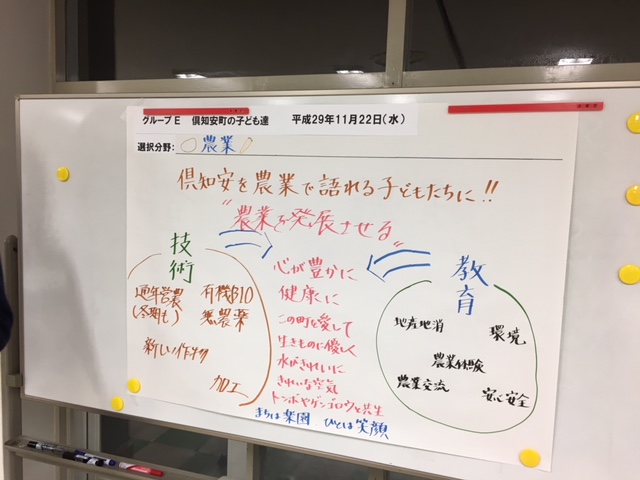 グループE 倶知安町の子ども達 平成29年11月22日(水)
選択分野: 農業
倶知安を農業で語れる子どもたちに!!
"農業を発展させる"
技術
通年営農
(冬期も)
有機BIO
無農薬
新しい作物
加工
心が豊かに
健康に
この町を愛して
生きものに優しく
水がきれいに
きれいな空気
トンボやゲンゴロウと共生
まちは楽園 ひとは笑顔
教育
地産地消
環境
農業体験
農業交流
安心安全